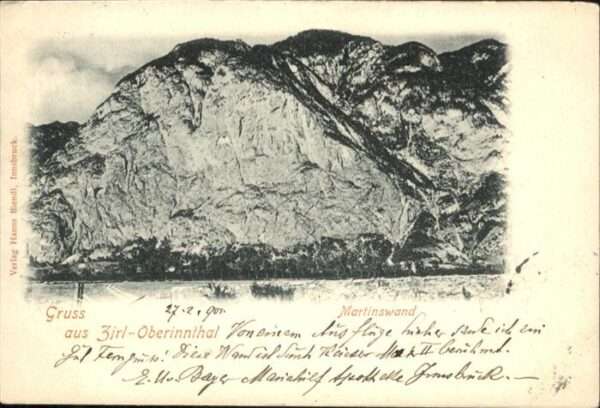 Verlag Hanns Riendl, Innsbruck.
Gruss
27.2.900
Martinswand
aus Zirl-Oberinnthal Von einem Ausfluge hieher sende ich ein
gut Diese Wand ist durch Kaiser Max II berühmt.
E. v. Bayer Mariahilf Apotheke Innsbruck.